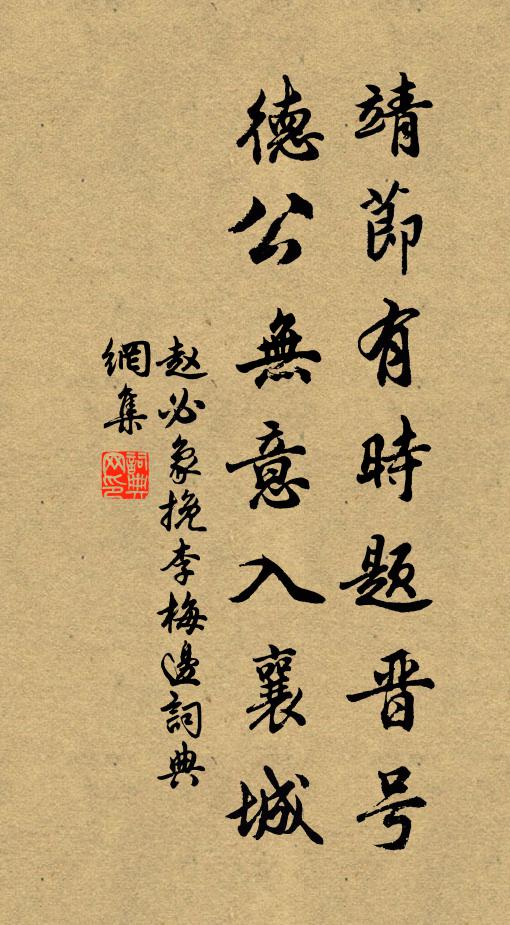 靖節有時题晋号
德公無意入襄城
赵必象挽李梅邊詞典
網集
詞典网印